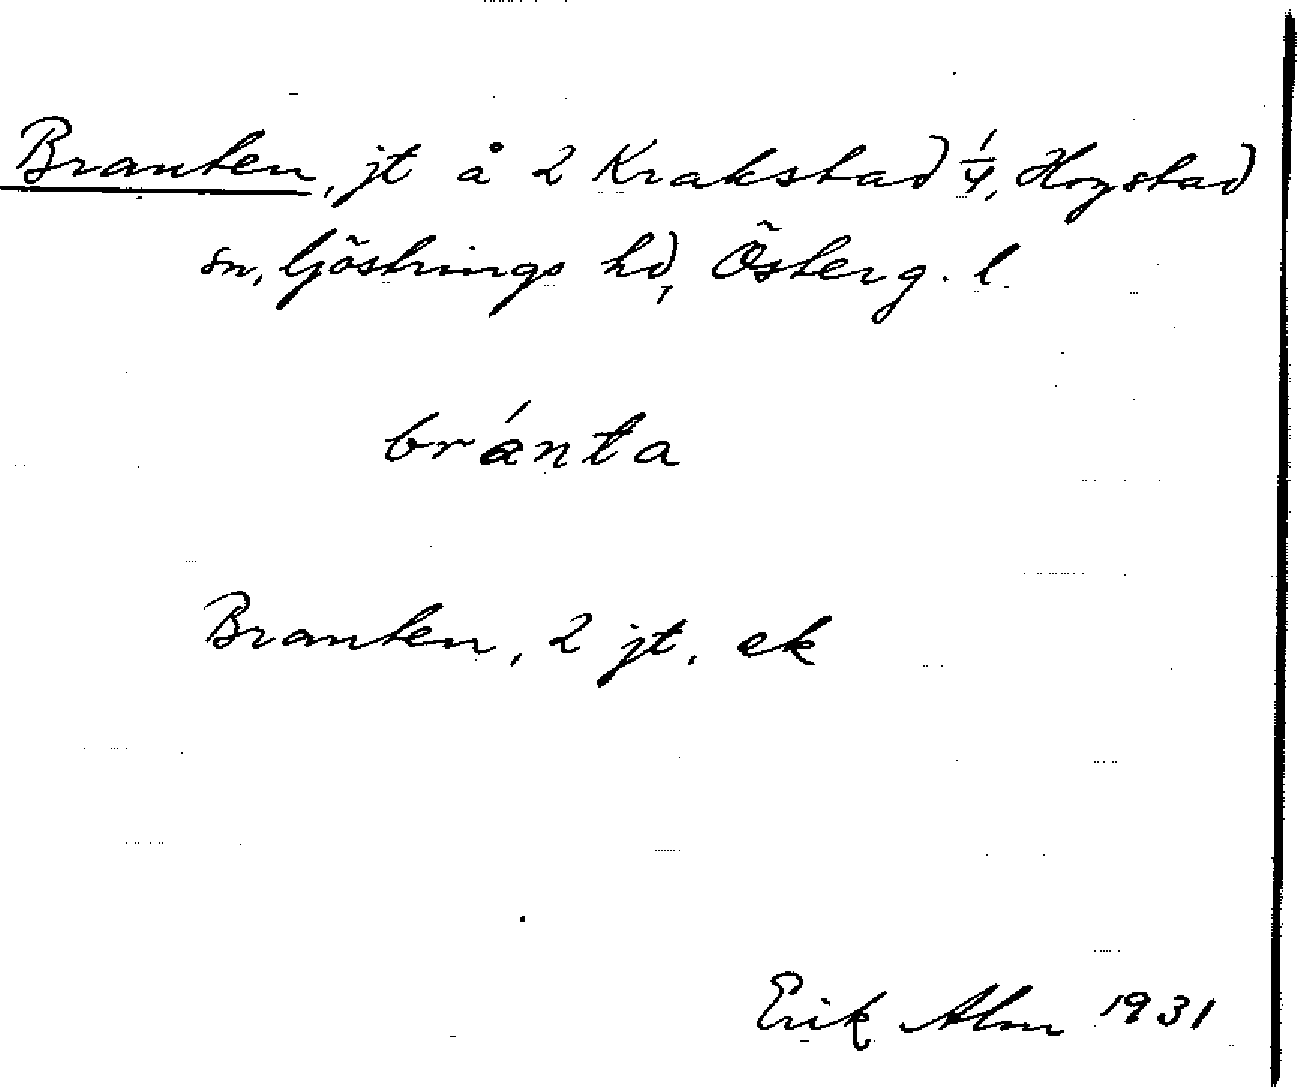 Branten, jt å 2 Krakstad 1/4, Hogstad
sn, Göstrings hd, Österg. l.
bránta
Branten, 2 jt. ek
Erik Alm 1931